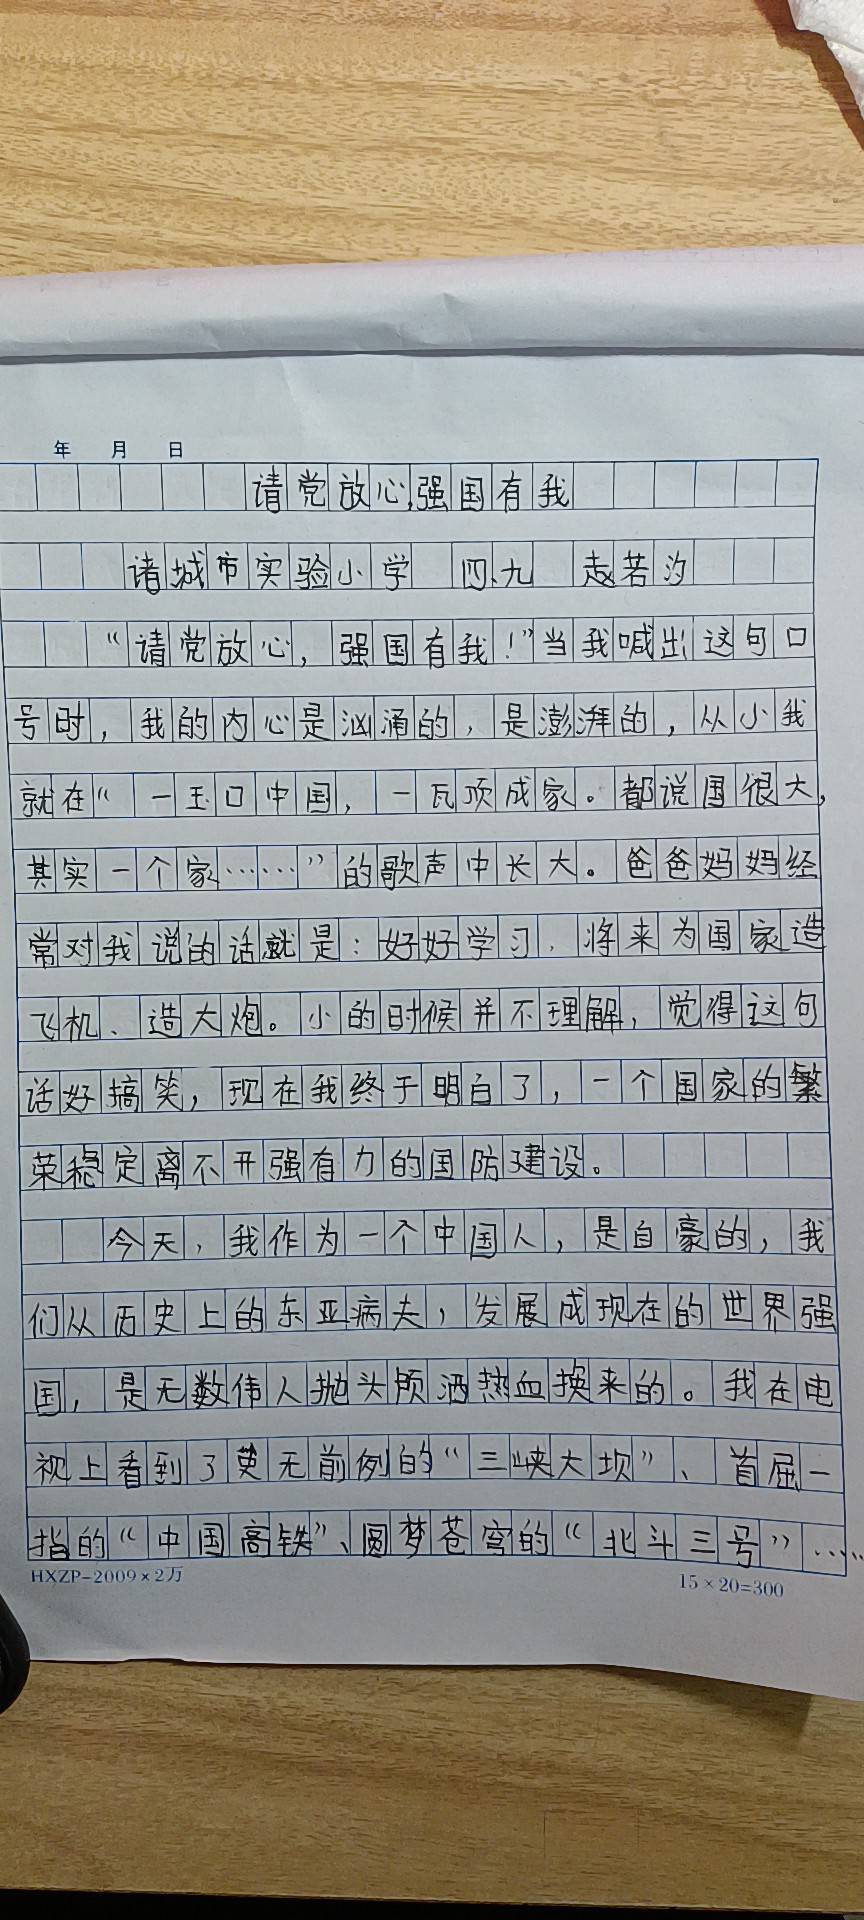 年 月 日
请党放心,强国有我
诸城市实验小学 四、九 赵若汐
“请党放心，强国有我！”当我喊出这句口
号时，我的内心是汹涌的，是澎湃的，从小我
就在“一玉口中国，一瓦顶成家。都说国很大，
其实一个家……”的歌声中长大。爸爸妈妈经
常对我说的话就是：好好学习，将来为国家造
飞机、造大炮。小的时候并不理解，觉得这句
话好搞笑，现在我终于明白了，一个国家的繁
荣稳定离不开强有力的国防建设。
今天，我作为一个中国人，是自豪的，我
们从历史上的东亚病夫，发展成现在的世界强
国，是无数伟人抛头颅洒热血换来的。我在电
视上看到了史无前例的“三峡大坝”、首屈一
指的“中国高铁”、圆梦苍穹的“北斗三号”……
HXZP-2009×2万
15×20=300